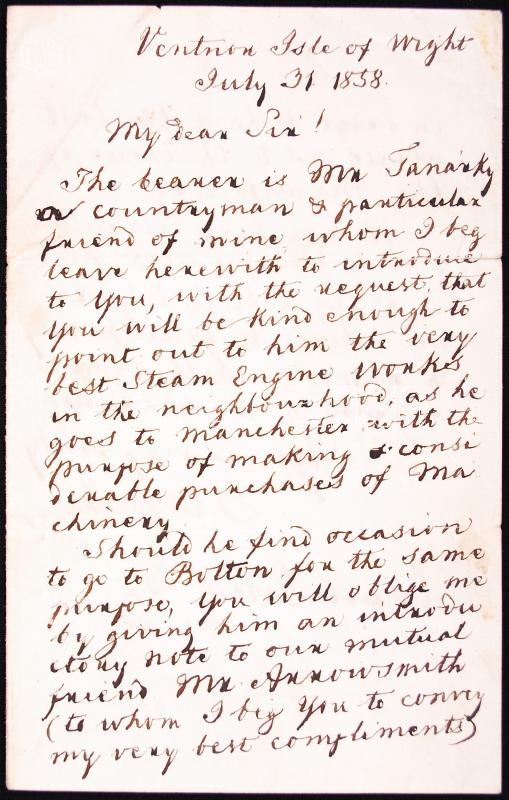 Ventnor Isle of Wight
July 31 1858.
My dear Sir!
The bearer is Mr Tanárky
a countryman & particular
friend of mine, whom I beg
leave herewith to introduce
to You, with the request, that
You will be kind enough to
point out to him the very
best Steam Engine Workes
in the neighbourhood, as he
goes to Manchester with the
purpose of making consi
derable purchases of Ma
chinery
Should he find occasion
to go to Bolton for the same
purpose, You will oblige me
by giving him an introdu
ctory note to our mutual
friend Mr Arrowsmith
(to whom I beg You to convey
my very best compliments)